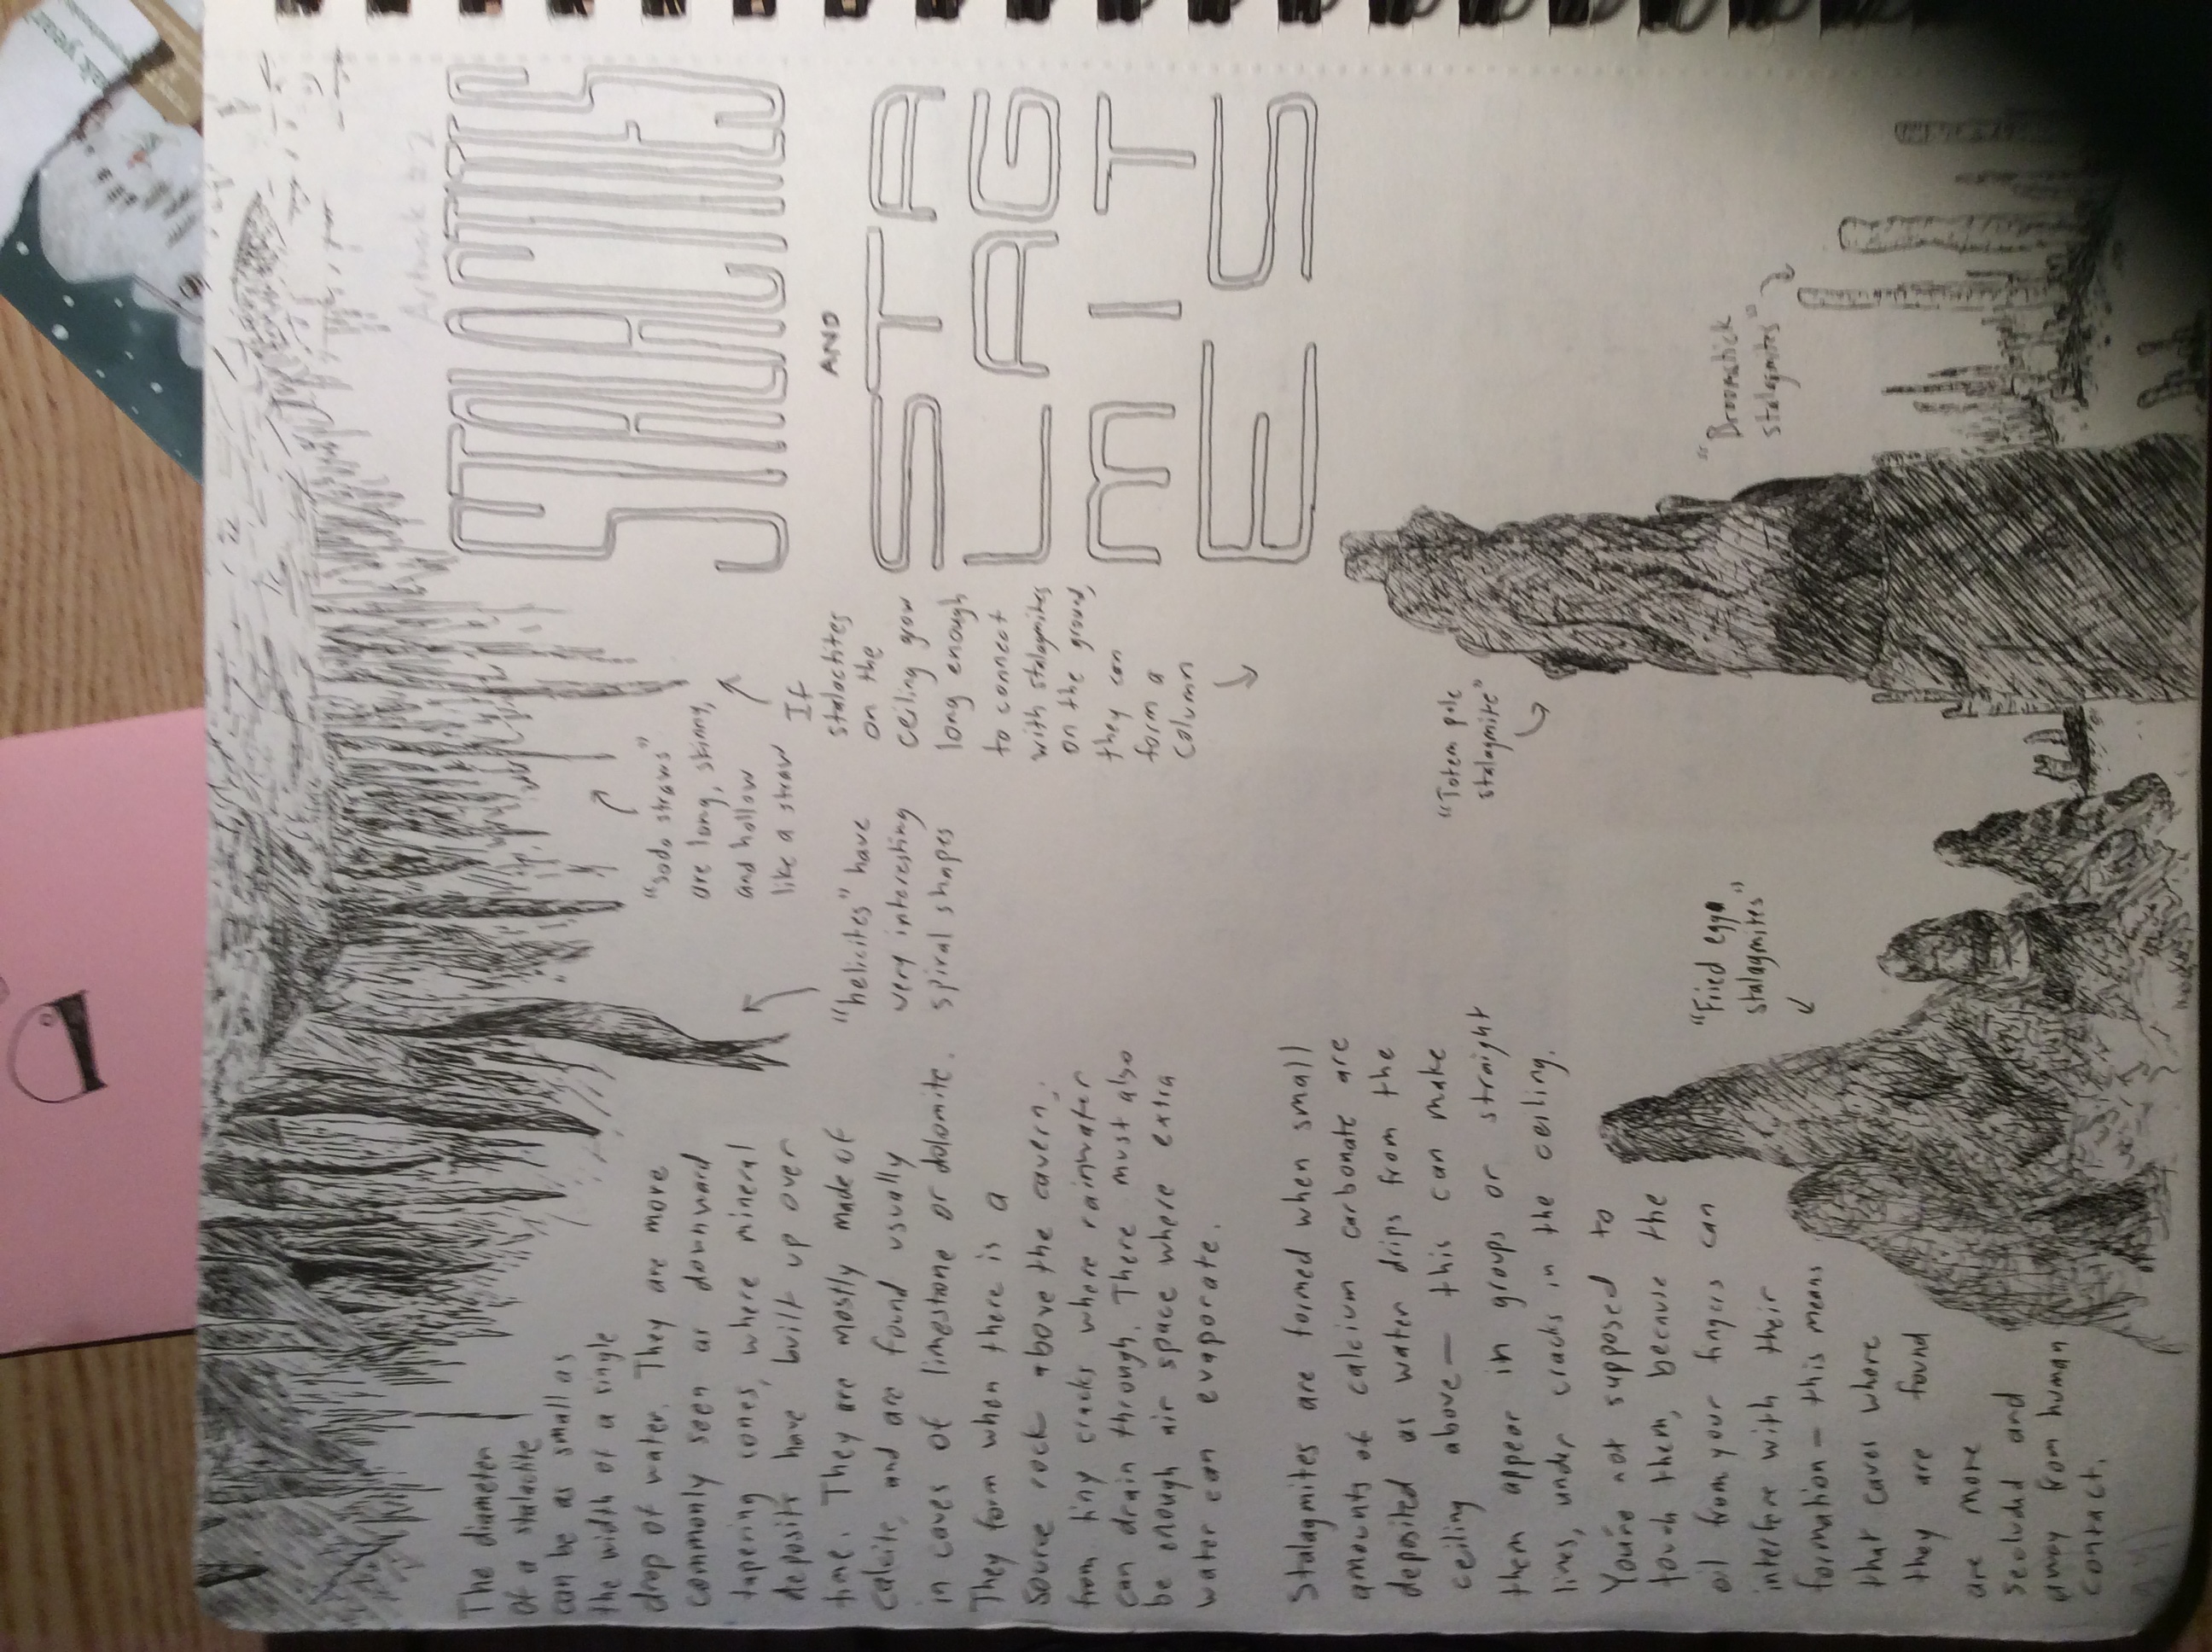 STALACTITES
AND
STA
LAG
MIT
ES
The diameter
of a stalactite
can be as small as
the width of a single
drop of water. They are more
commonly seen as downward
tapering cones, where mineral
deposits have built up over
time. They are mostly made of
calcite, and are found usually
in caves of limestone or dolomite.
They form when there is a
source rock above the cavern,
from tiny cracks where rainwater
can drain through. There must also
be enough air space where extra
water can evaporate.
"soda straws"
are long, skinny,
and hollow
like a straw
"helicites" have
very interesting
spiral shapes
If
stalactites
on the
ceiling grow
long enough
to connect
with stalagmites
on the ground,
they can
form a
column
Stalagmites are formed when small
amounts of calcium carbonate are
deposited as water drips from the
ceiling above — this can make
them appear in groups or straight
lines, under cracks in the ceiling.
You're not supposed to
touch them, because the
oil from your fingers can
interfere with their
formation — this means
that caves where
they are found
are more
secluded and
away from human
contact.
"Fried egg
stalagmites"
"Totem pole
stalagmite"
"Broomstick
stalagmites"